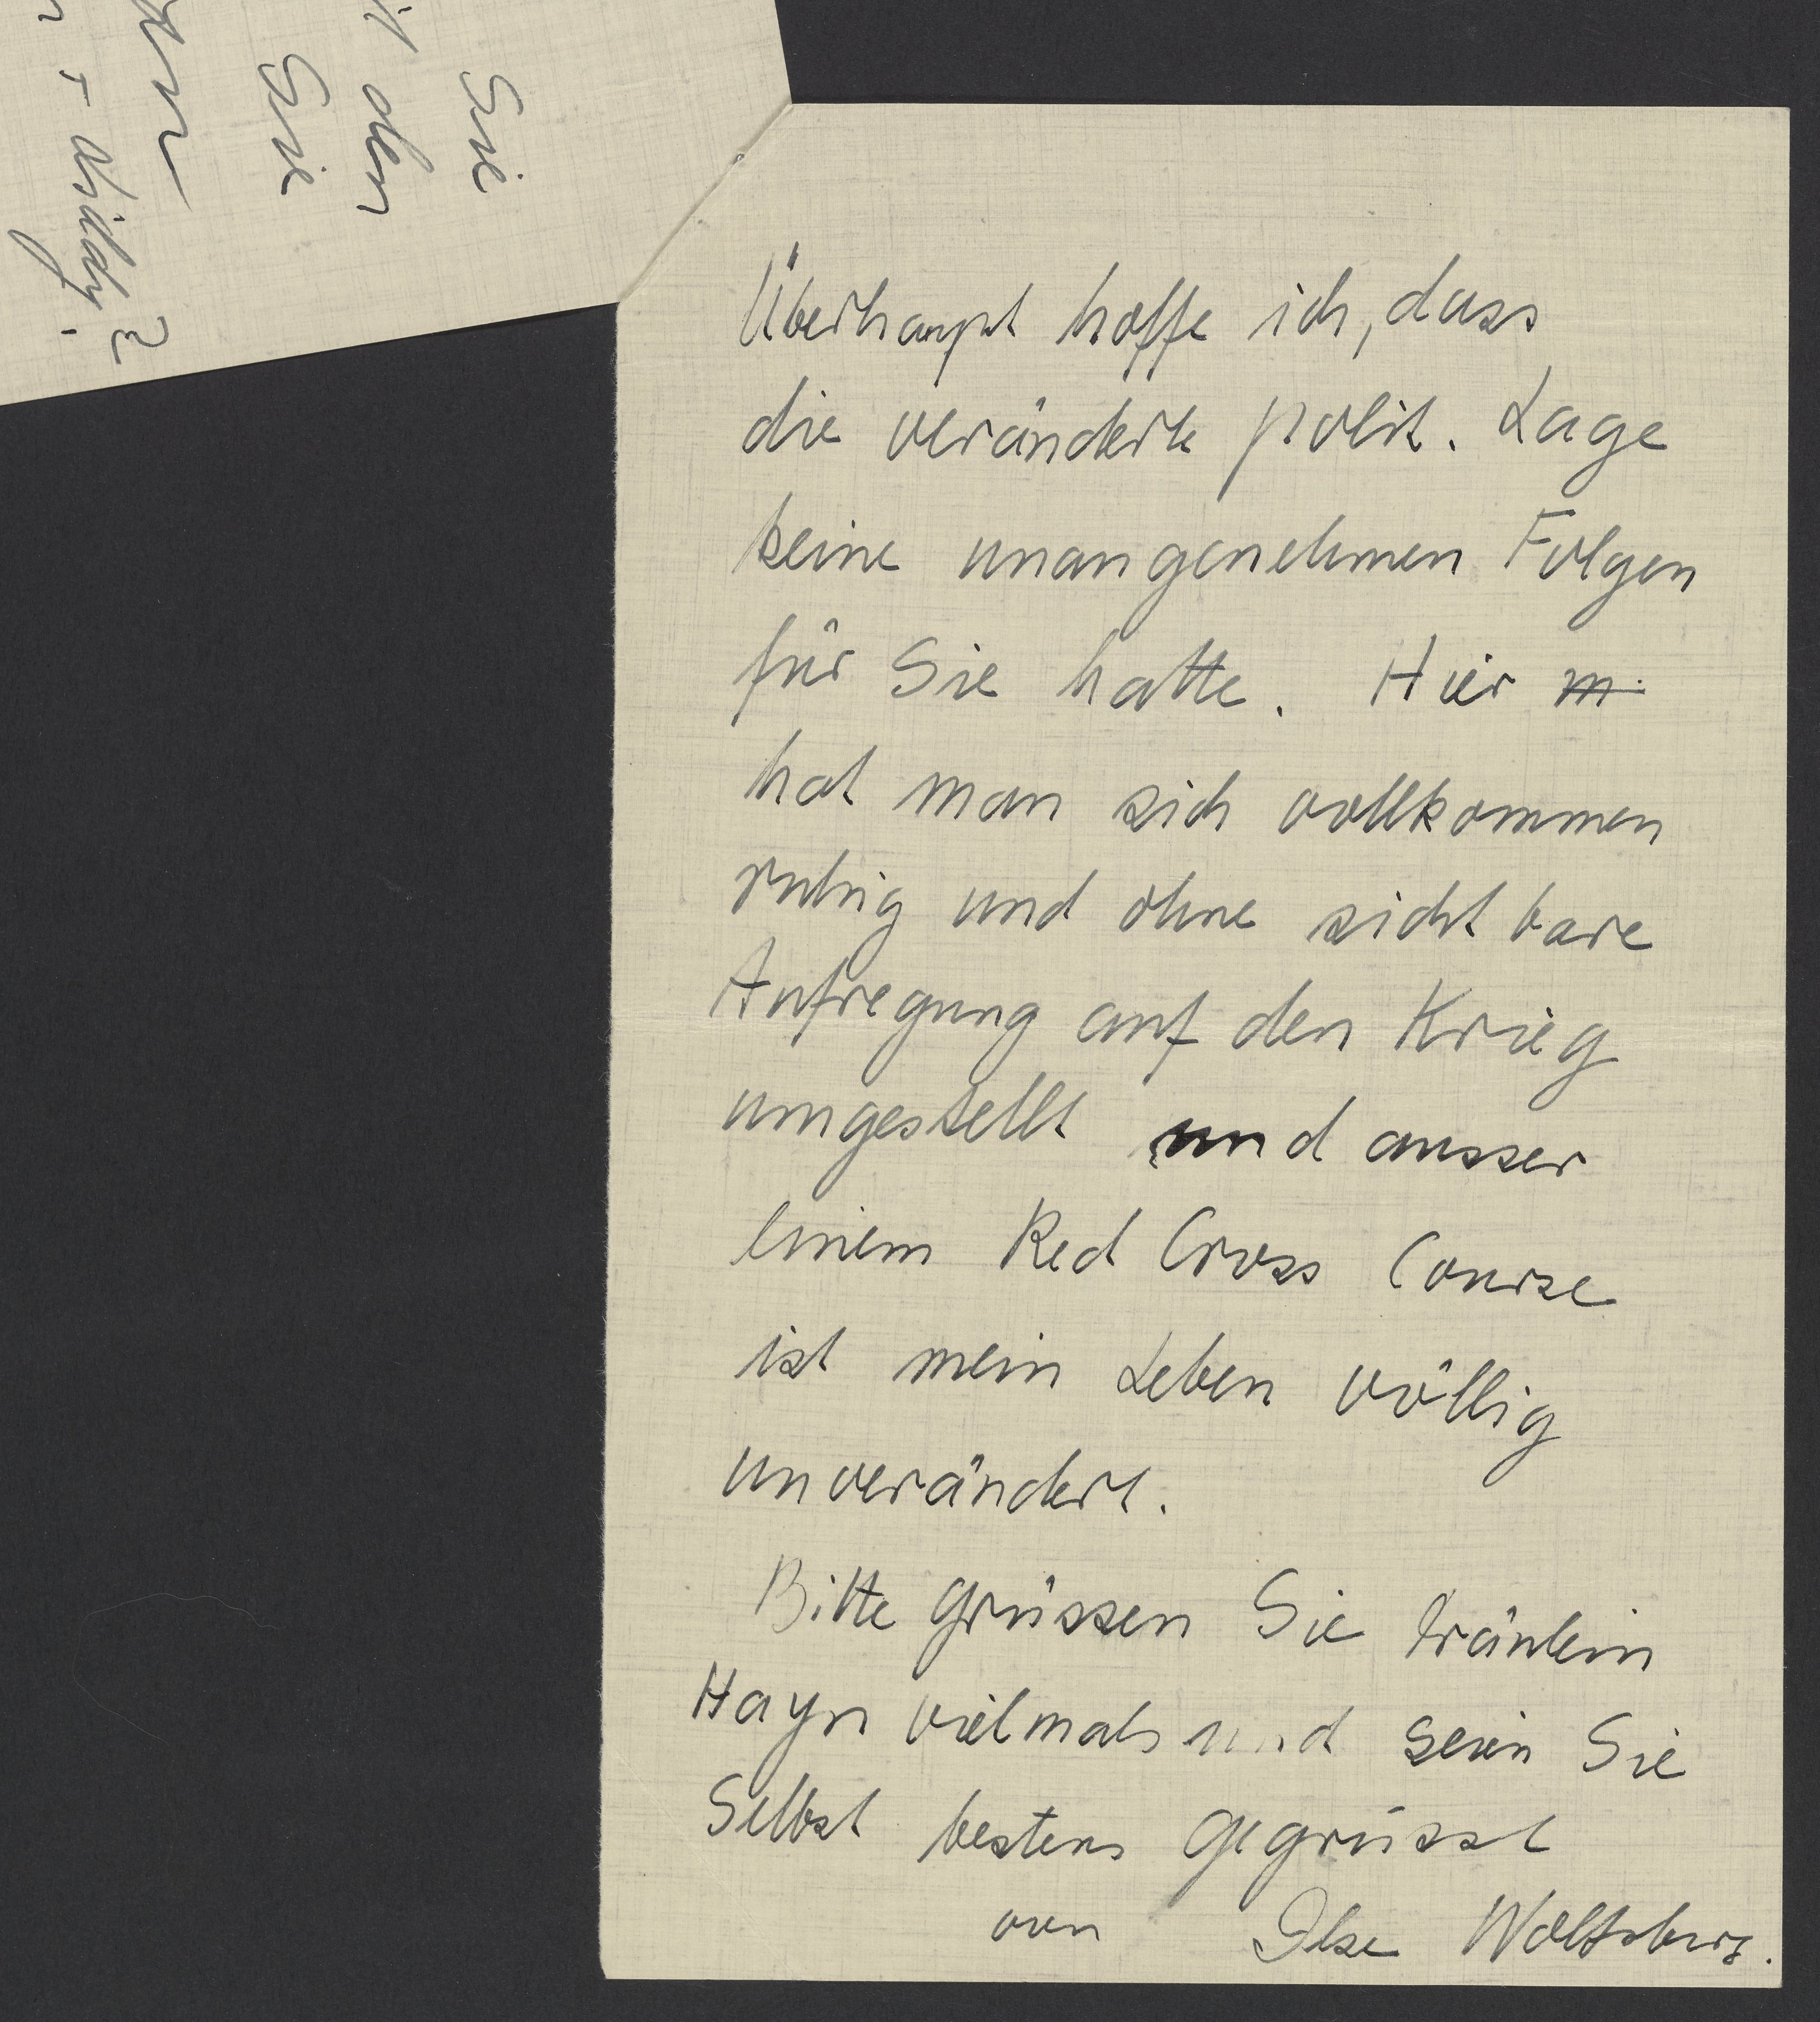 Sie
den
Sie
Überhaupt hoffe ich, dass
die veränderte polit. Lage
keine unangenehmen Folgen
für Sie hatte. Hier m
hat man sich vollkommen
ruhig und ohne sichtbare
Aufregung auf den Krieg
umgestellt und ausser
einem Red Cross Course
ist mein Leben völlig
unverändert.
Bitte grüssen Sie Fräulein
Hayn vielmals und seien Sie
Selbst bestens gegrüsst
von Ilse Wolfsberg.